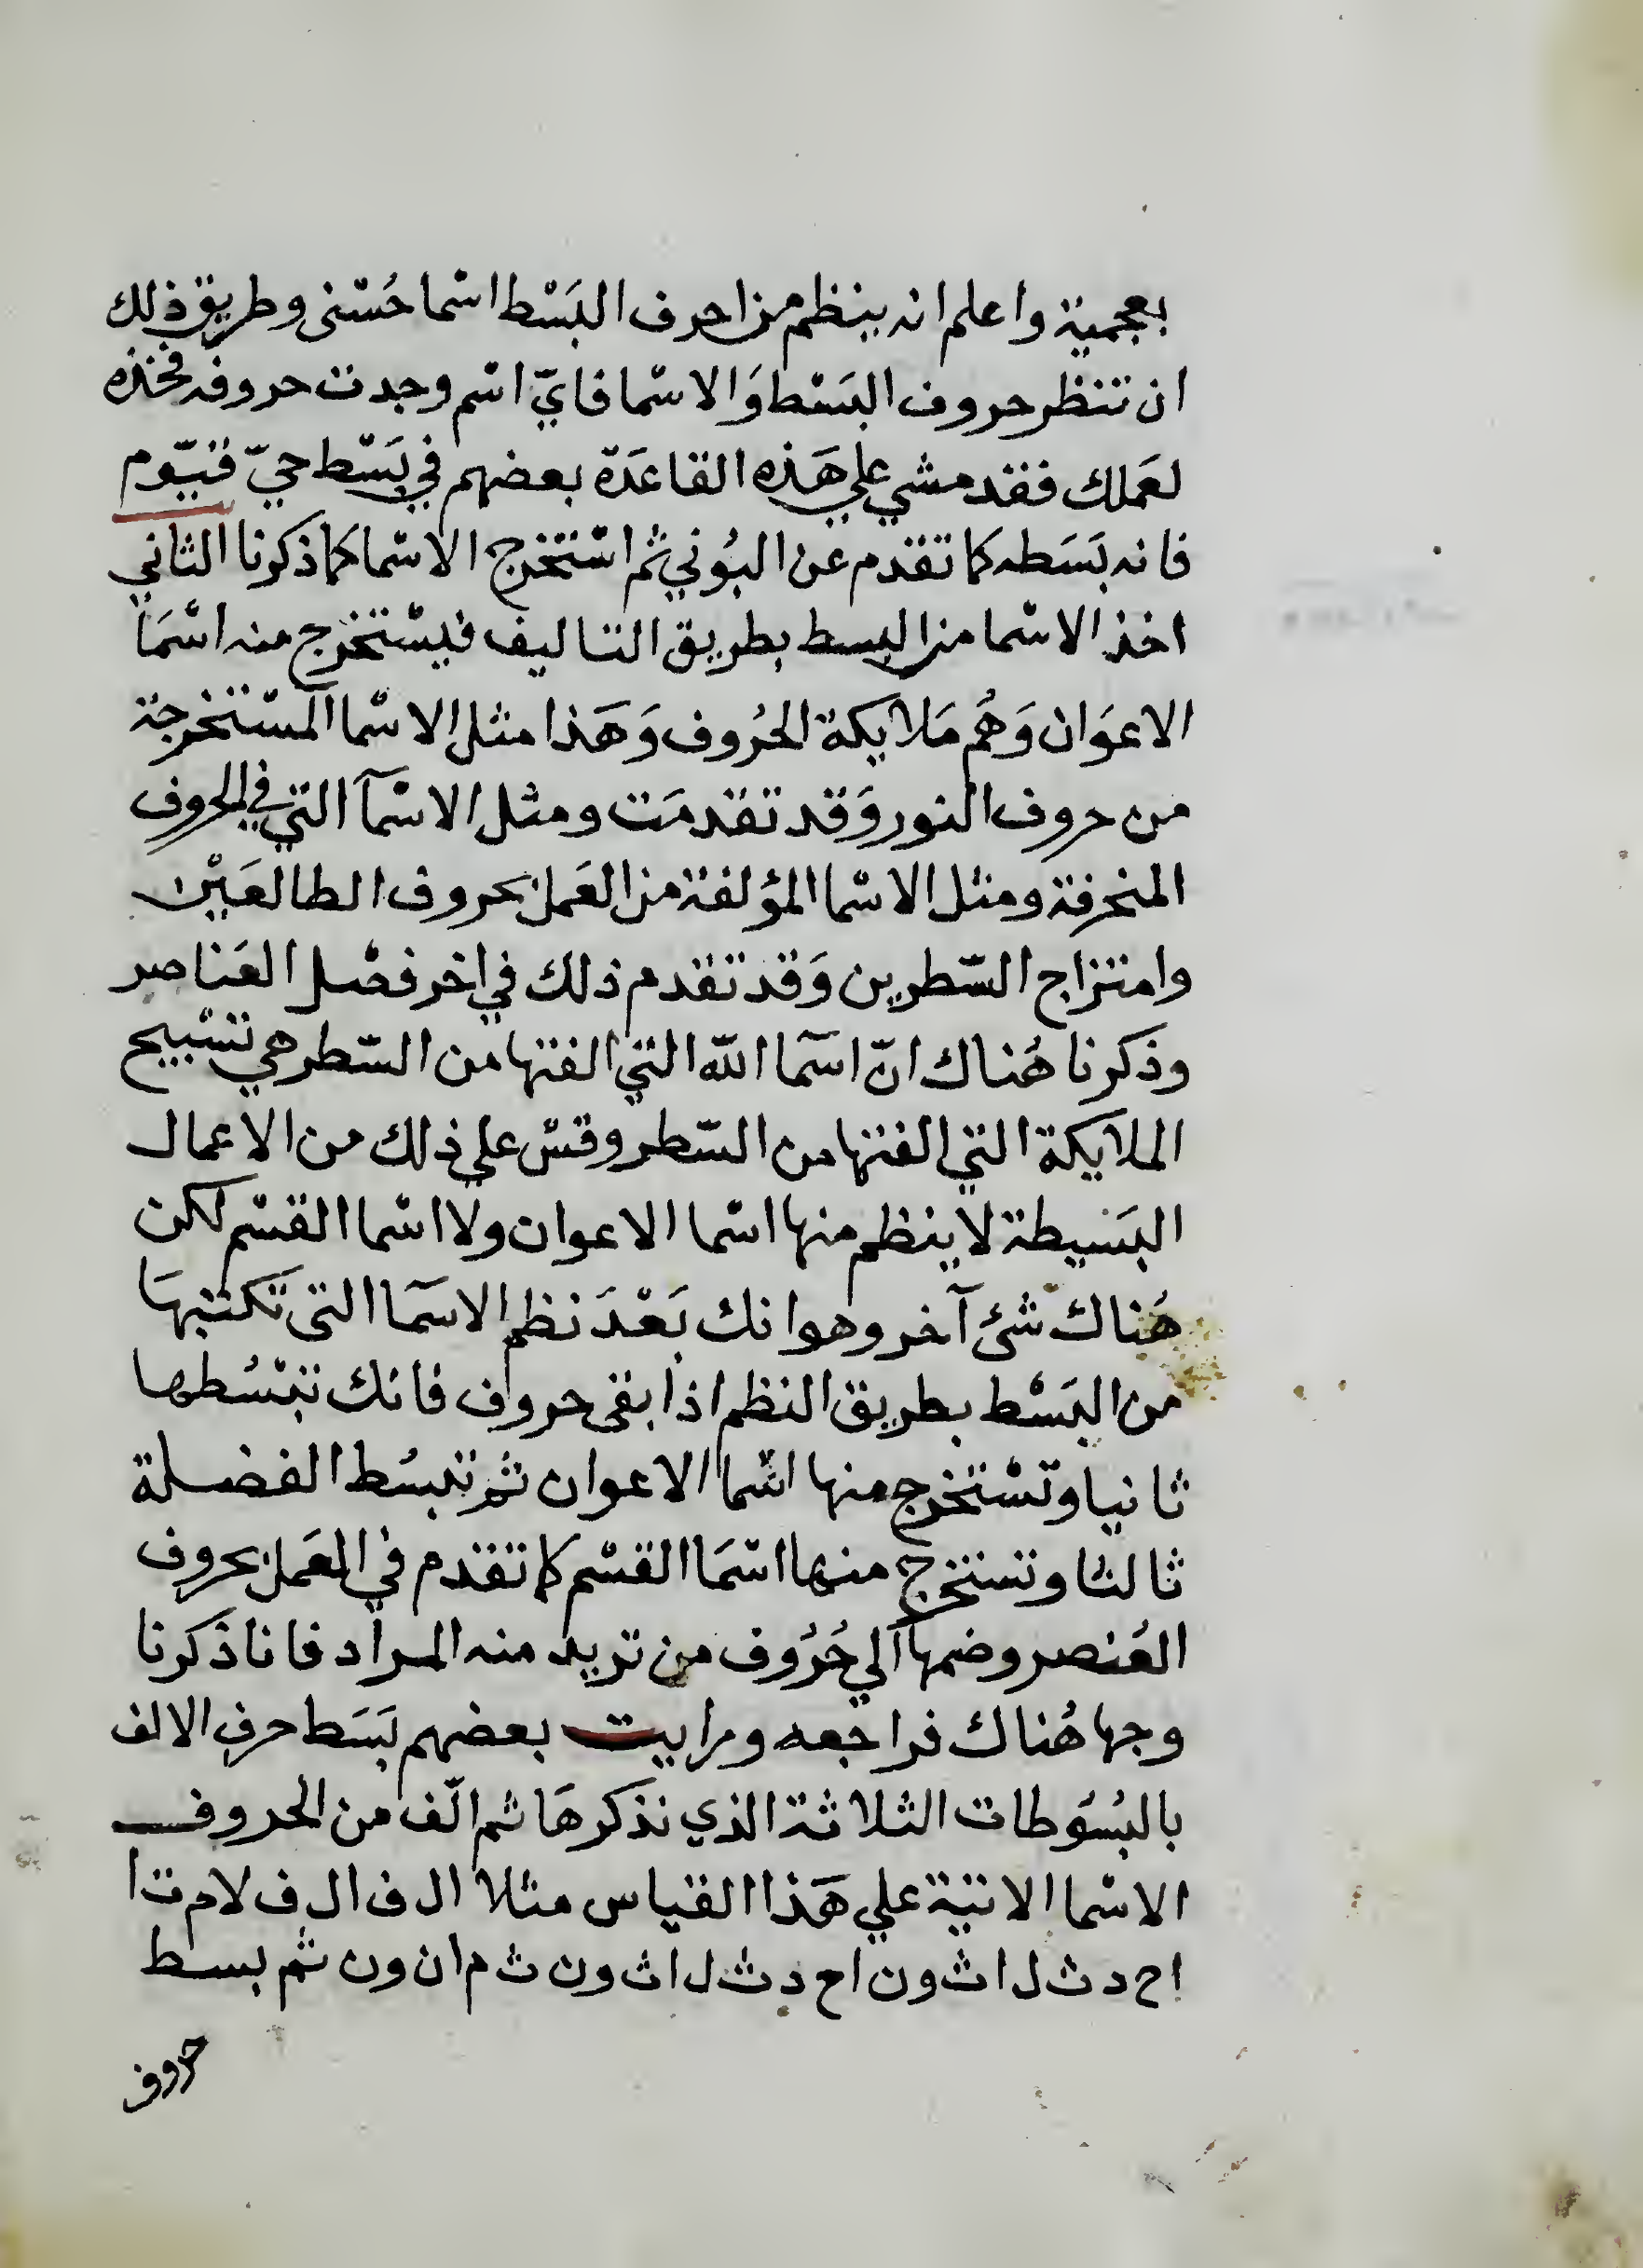 بعجمية واعلم انه ينظم من احرف البَسْط اسْما حُسْنى وطريق ذلك
ان تنظر حروف البَسْط وَالاسْما فايّ اسْم وجدت حروفه فخذه
لعَملك فقد مشي علي هَذه القاعَدة بعضهم في بَسْط حيّ قيّوم
فانه بَسَطه كما تقدم عن البُوني ثم اسْتخرج الاسْما كما ذكرنا الثاني
اخذ الاسْما من البسط بطريق التاليف فيسْتخرج منه اسْمَا
الاعوَان وَهُم مَلايكة الحُروف وَهَذا مثل الاسْما المسْتخرجة
من حروف النور وَقد تقدمَت ومثل الاسْمآ التي في الحروف
المنحرفة ومثل الاسْما المؤلفة من العَمل بحروف الطالعَيْن
وامتزاج السّطرين وَقد تقدم ذلك في اخر فصْل العَناصر
وذكرنا هُناك انّ اسمآ الله التي الفتها من السّطر هي تسْبيح
الملايكة التي الفتها من السّطر وقسْ علي ذلك من الاعمال
البَسيطة لا ينظم منها اسْما الاعوان ولا اسْما القسْم لكن
هُناك شئ آخر وهو انك بَعْدَ نظم الاسمآ التى تكتبهَا
من البَسْط بطريق النظم اذا بقى حروف فانك تبْسُطها
ثانيا وتسْتخرج منها اسْما الاعوان ثم تبسُط الفضلة
ثالثا وتستخرج منها اسْمَا القسْم كما تقدم في العَمل بحروف
العُنصر وضمها الي حُرُوف من تريد منه المراد فانا ذكرنا
وجها هُناك فراجعه ورايت بعضهم بَسَط حرف الالف
بالبُسُوطات الثلاثة الذي نذكرهَا ثم الّف من الحروف
الاسْما الاتية علي هَذا القياس مثلا ال ف ال ف لام ت ا
اح د ث ل اث ون اح د ث ل اث ون ث م ان ون ثم بسط
حروف